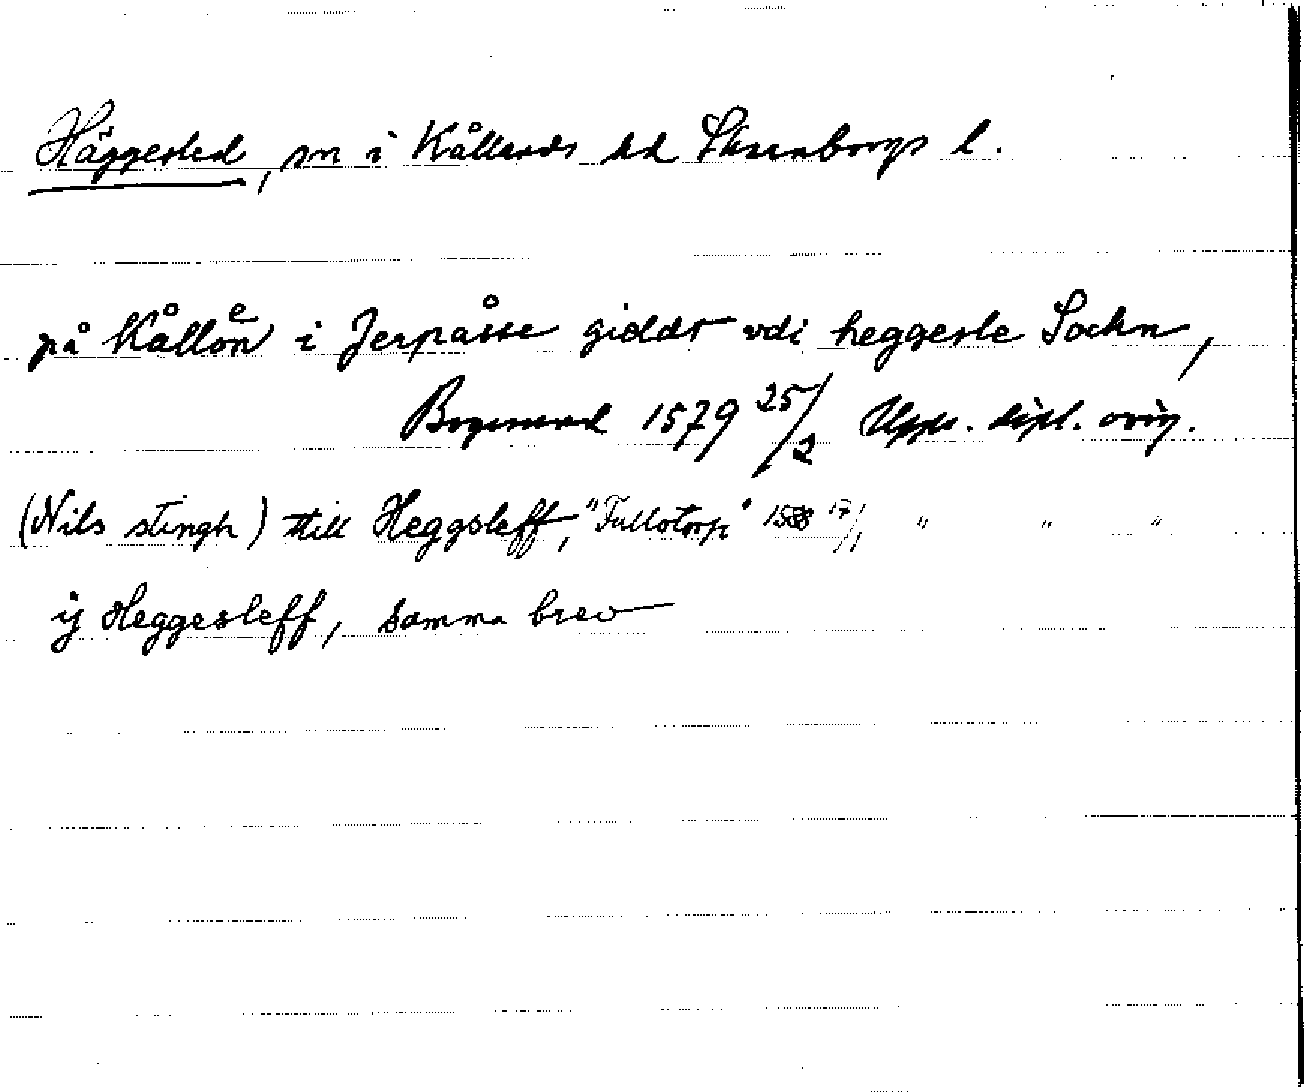 Häggesled, sn i Kållands hd Skaraborgs l.
på Kållön̊ i Jerpåsse gieldt vdi heggesle Sochn,
1579 25/2 Upps. dipl. orig.
(Nils stingh) till Heggsleff, "Fullotorp" 1588 17/1 " " "
ij Heggesleff, samma brev